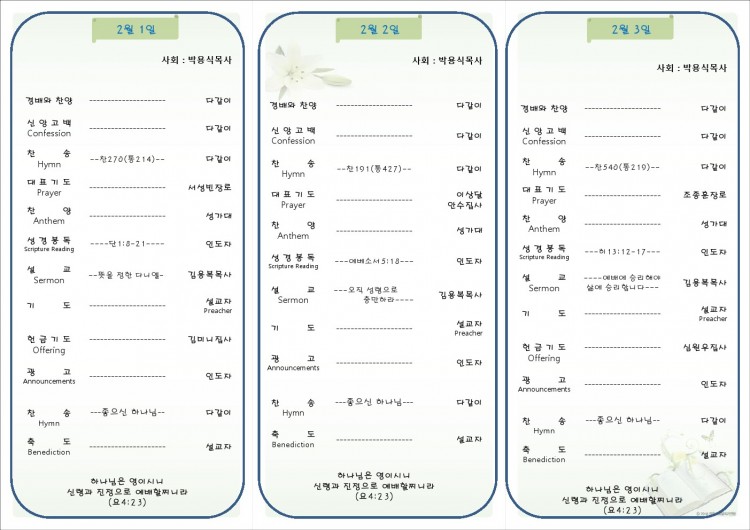 2월 1일
사회 : 박용식목사
경배와 찬양 --------------------- 다같이
신 앙 고 백 --------------------- 다같이
Confession
찬 송 --찬270(통214)-- 다같이
Hymn
대 표 기 도 --------------------- 서성빈장로
Prayer
찬 양 --------------------- 성가대
Anthem
성 경 봉 독 ----단1:8-21---- 인도자
Scripture Reading
설 교 --뜻을 정한 다니엘- 김용복목사
Sermon
기 도 --------------------- 설교자
Preacher
헌 금 기 도 --------------------- 김미니집사
Offering
광 고 --------------------- 인도자
Announcements
찬 송 ---좋으신 하나님-- 다같이
Hymn
축 도 --------------------- 설교자
Benediction
하나님은 영이시니
신령과 진정으로 예배할찌니라
(요4:23)
2월 2일
사회 : 박용식목사
경배와 찬양 --------------------- 다같이
신 앙 고 백 --------------------- 다같이
Confession
찬 송 --찬191(통427)-- 다같이
Hymn
대 표 기 도 --------------------- 이상달
Prayer 안수집사
찬 양 --------------------- 성가대
Anthem
성 경 봉 독 ---에베소서5:18--- 인도자
Scripture Reading
설 교 ---오직 성령으로 김용복목사
Sermon 충만하라----
기 도 --------------------- 설교자
Preacher
헌 금 기 도 ---------------------
Offering
광 고 --------------------- 인도자
Announcements
찬 송 ---좋으신 하나님--- 다같이
Hymn
축 도 --------------------- 설교자
Benediction
하나님은 영이시니
신령과 진정으로 예배할찌니라
(요4:23)
2월 3일
사회 : 박용식목사
경배와 찬양 --------------------- 다같이
신 앙 고 백 --------------------- 다같이
Confession
찬 송 --찬540(통219)-- 다같이
Hymn
대 표 기 도 --------------------- 조종훈장로
Prayer
찬 양 --------------------- 성가대
Anthem
성 경 봉 독 ---히13:12-17--- 인도자
Scripture Reading
설 교 ----예배에 승리해야 김용복목사
Sermon 삶에 승리합니다---
기 도 --------------------- 설교자
Preacher
헌 금 기 도 --------------------- 심원우집사
Offering
광 고 --------------------- 인도자
Announcements
찬 송 ---좋으신 하나님-- 다같이
Hymn
축 도 --------------------- 설교자
Benediction
하나님은 영이시니
신령과 진정으로 예배할찌니라
(요4:23)